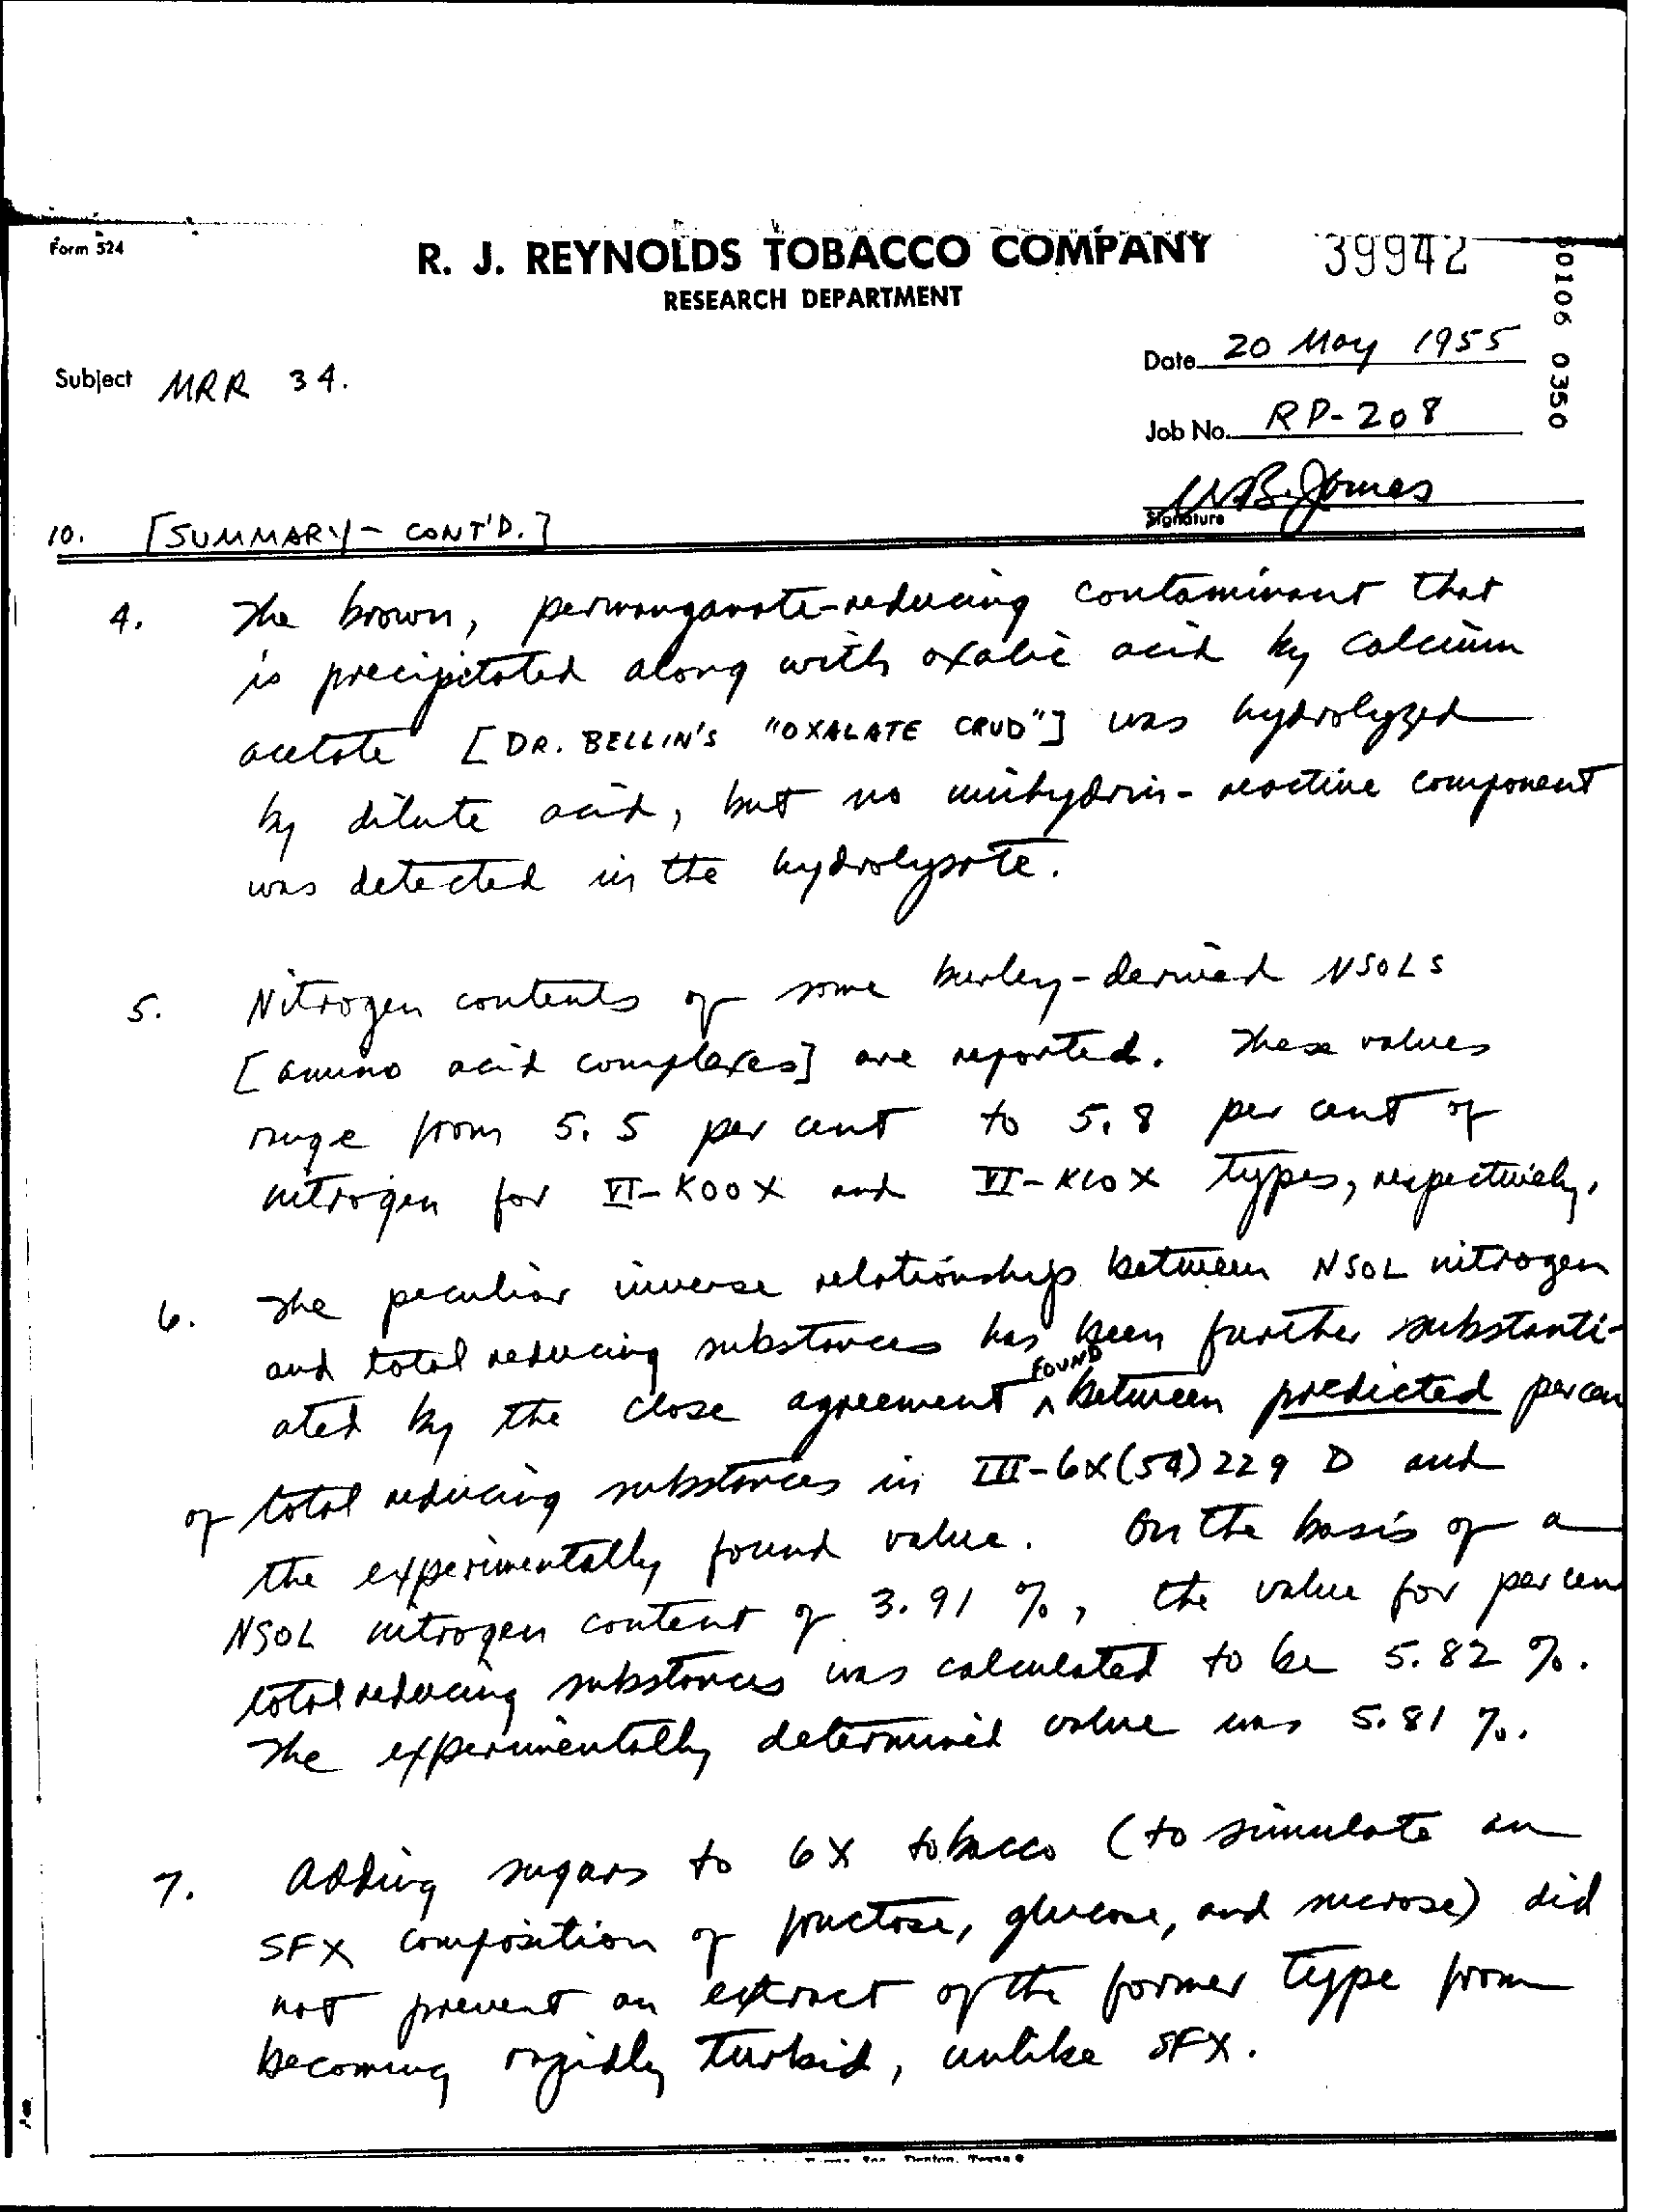 Form 524
R. J. REYNOLDS TOBACCO COMPANY
39942
RESEARCH DEPARTMENT
50106 0350
Date 20 May 1955
Subject MRR 34.
Job No. RP-208
Signature
10. [SUMMARY - CONT'D.]
4. The brown, permanganate-reducing contaminant that
is precipitated along with oxalic acid by calcium
acetate [DR. BELLIN'S "OXALATE CRUD"] was hydrolyzed
by dilute acid, but no ninhydrin-reactive component
was detected in the hydrolysate.
5. Nitrogen contents of some burley-derived NSOLS
[amino acid complexes] are reported. These values
range from 5.5 per cent to 5.8 per cent of
nitrogen for VI-K00X and VI-K10X types, respectively.
6. The peculiar inverse relationship between NSOL nitrogen
and total reducing substances has been further substanti-
ated by the close agreement FOUND between predicted percen
of total reducing substances in III-6X(54)229 D and
the experimentally found value. On the basis of a
NSOL nitrogen content of 3.91 %, the value for per cen
total reducing substances was calculated to be 5.82 %.
The experimentally determined value was 5.81 %.
7. Adding sugars to 6X tobacco (to simulate an
SFX composition of fructose, glucose, and sucrose) did
not prevent an extract of the former type from
becoming rapidly turbid, unlike SFX.